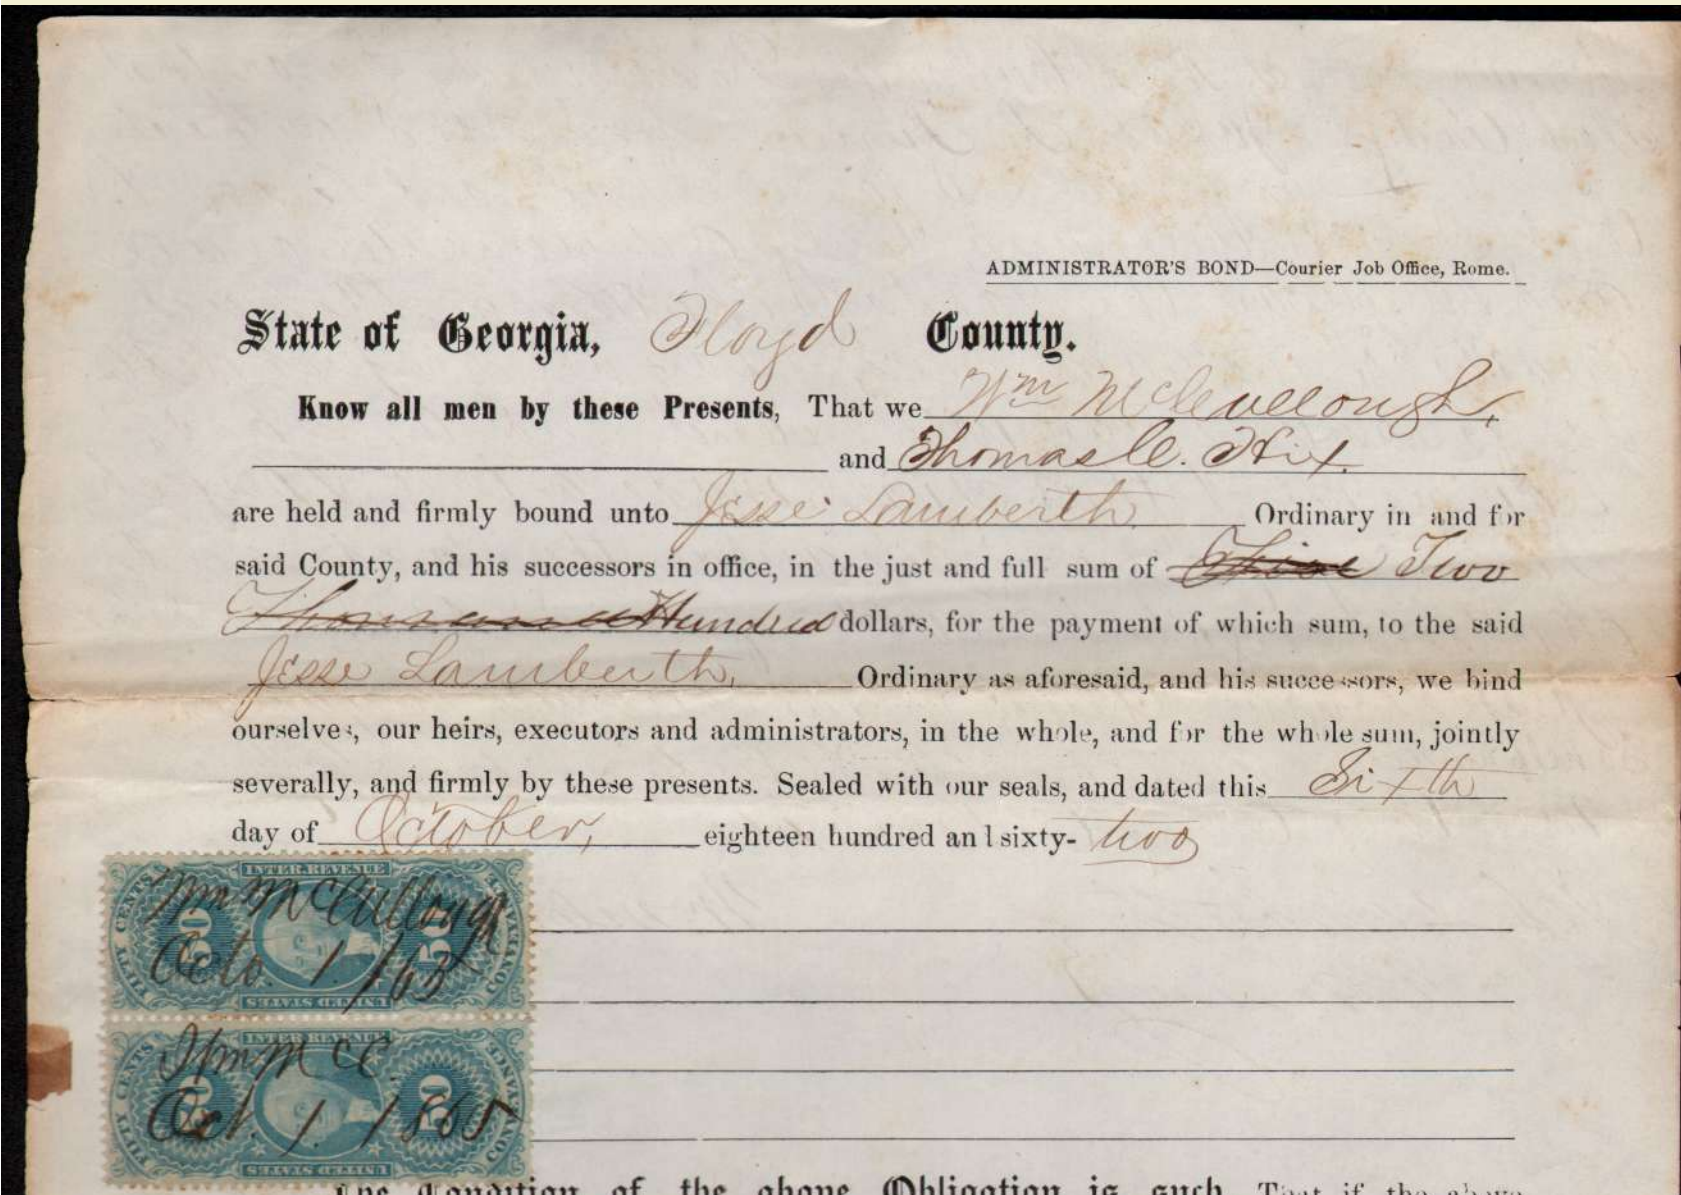 ADMINISTRATOR'S BOND—Courier Job Office, Rome.
State of Georgia, Floyd County.
Know all men by these Presents, That we Wm McCullough,
and Thomas C. Hix.
are held and firmly bound unto Jesse Lamberth Ordinary in and for
said County, and his successors in office, in the just and full sum of Two
Thousand Hundred dollars, for the payment of which sum, to the said
Jesse Lamberth, Ordinary as aforesaid, and his successors, we bind
ourselves, our heirs, executors and administrators, in the whole, and for the whole sum, jointly
severally, and firmly by these presents. Sealed with our seals, and dated this Sixth
day of October, eighteen hundred and sixty- two
INTER. REVENUE
FIFTY CENTS
50
50
CONVEYANCE
Wm McCullough
Octo. 1. /65
UNITED STATES
INTER. REVENUE
FIFTY CENTS
50
50
CONVEYANCE
Wm McC.
Oct. 1. 1865
UNITED STATES
The Condition of the above Obligation is such, That if the above